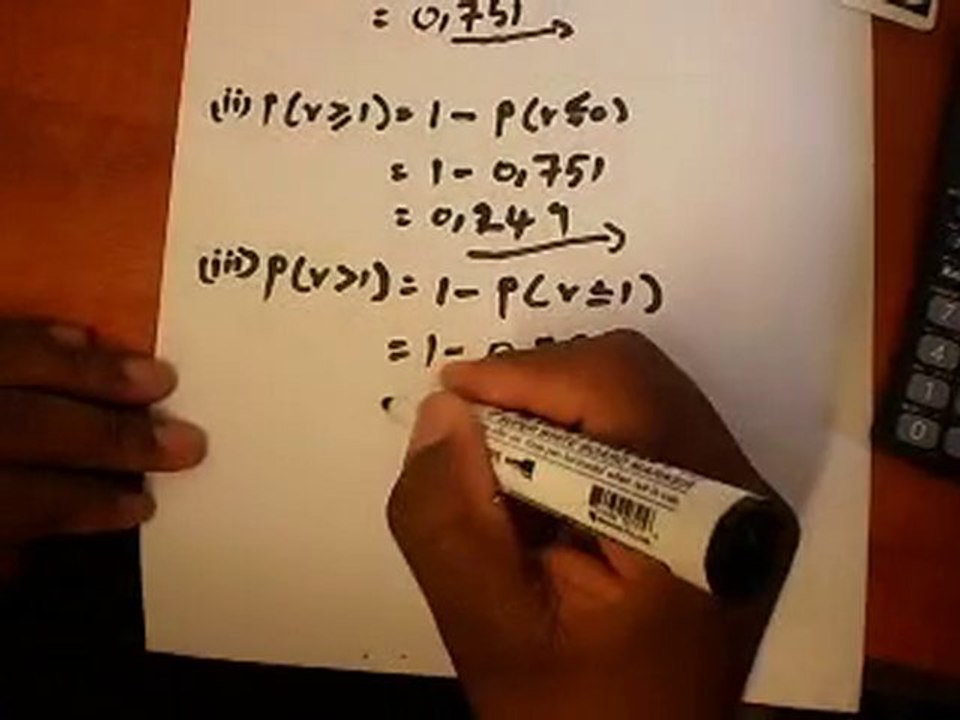 = 0,751
(ii) P(r⩾1) = 1 - P(r≤0)
= 1 - 0,751
= 0,249
(iii) P(r>1) = 1 - P(r≤1)
= 1 -
7
4
1
0